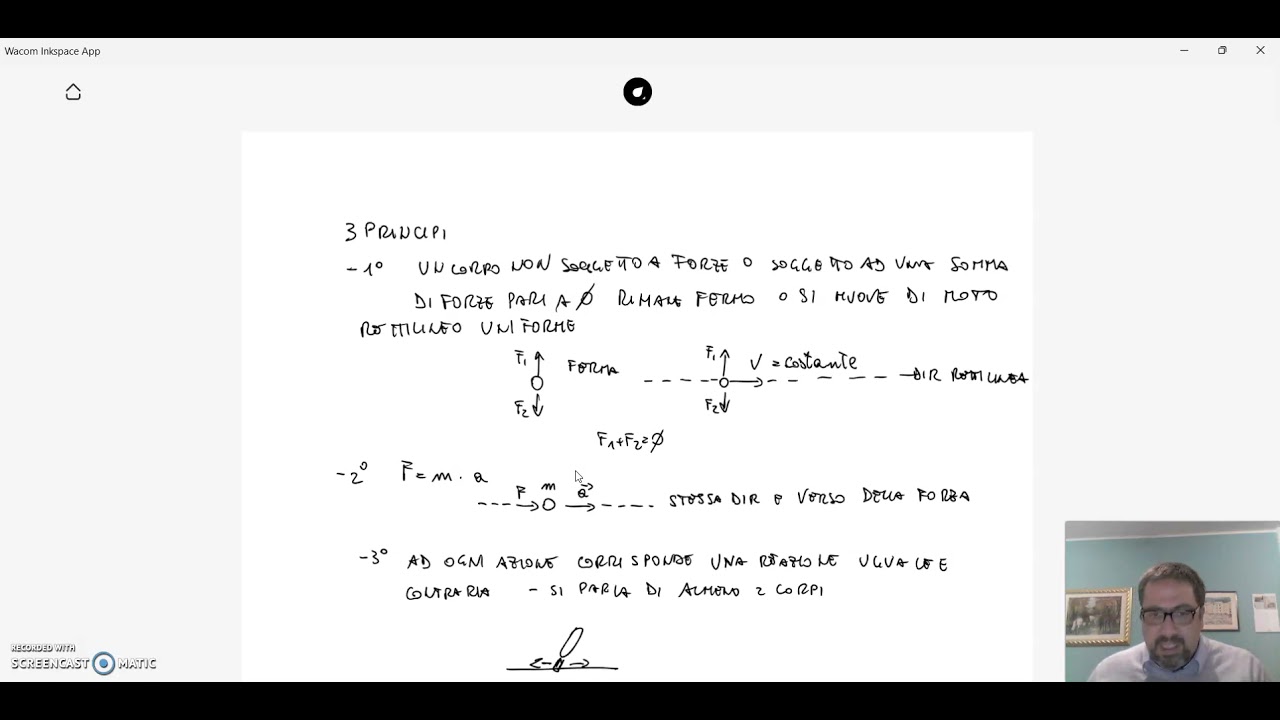 Wacom Inkspace App
3 PRINCIPI
- 1° UN CORPO NON SOGGETTO A FORZE O SOGGETTO AD UNA SOMMA
DI FORZE PARI A Ø RIMANE FERMO O SI MUOVE DI MOTO
RETTILINEO UNIFORME
F₁ FERMA F₁ V = costante
DIR RETTILINEA
F₂ F₂
F₁+F₂=Ø
- 2° F⃗ = m · a
F m a⃗ STESSA DIR E VERSO DELLA FORZA
- 3° AD OGNI AZIONE CORRISPONDE UNA REAZIONE UGUALE E
CONTRARIA - SI PARLA DI ALMENO 2 CORPI
RECORDED WITH
SCREENCAST MATIC